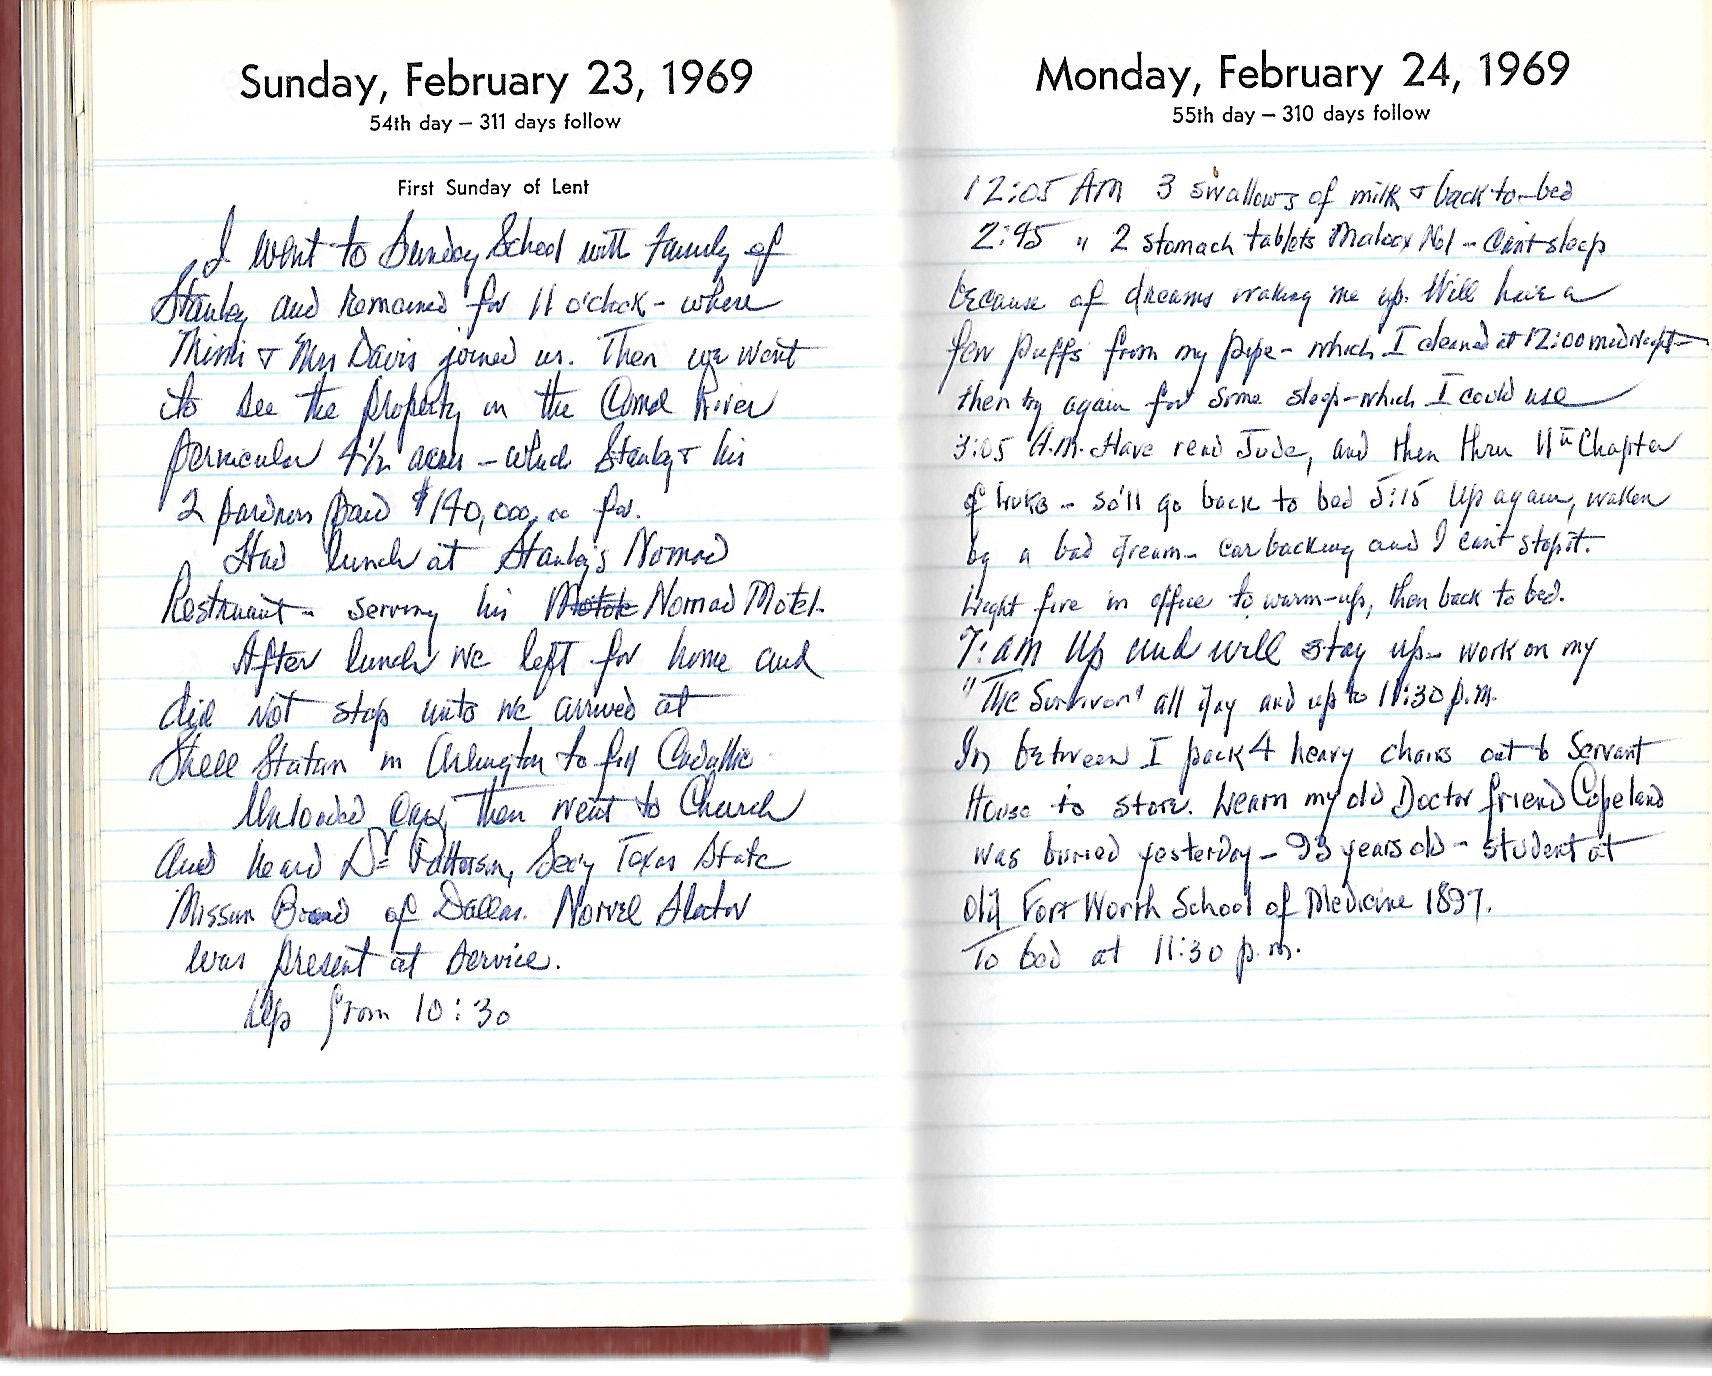 Sunday, February 23, 1969
54th day — 311 days follow
First Sunday of Lent
I went to Sunday School with family of
Stanley and remained for 11 o'clock - where
Mimi & Mrs Davis joined us. Then we went
to see the property on the Comal River
4½ acres - which Stanley & his
2 pardners paid $140,000.00 for.
Had lunch at Stanley's Nomad
Restruant - serving his Nomad Motel.
After lunch we left for home and
did not stop until we arrived at
Shell Station in Arlington to fill Cadillic
Unloaded Then went to Church
and heard Dr Patterson, Sec'y Texas State
Mission Board of Dallas. Norvel Slator
was present at service.
Up from 10:30
Monday, February 24, 1969
55th day — 310 days follow
12:05 AM 3 swallows of milk & back to-bed
2:45 " 2 stomach tablets Malocx No1 - Can't sleep
because of dreams waking me up. Will have a
few puffs from my pipe - which I cleaned at 12:00 midnight -
then try again for some sleep - which I could use
3:05 A.M. Have read Jude, and then thru 11th Chapter
of Luke - so'll go back to bed 5:15 Up again, waken
by a bad dream - car backing and I can't stop it.
Light fire in office to warm-up, then back to bed.
7: am Up and will stay up - work on my
"The Survivor" all day and up to 11:30 p.m.
In between I pack 4 heavy chairs out to Servant
House to store. Learn my old Doctor friend Copeland
was buried yesterday - 93 years old - student at
old Fort Worth School of Medicine 1897.
To bed at 11:30 p.m.